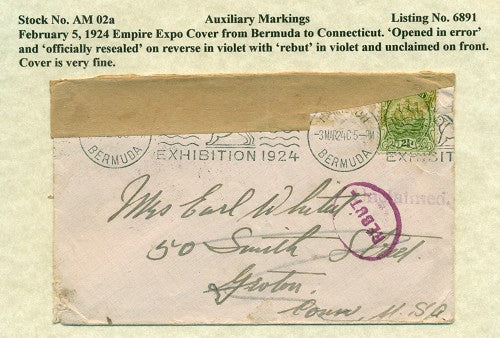 Stock No. AM 02a Auxiliary Markings Listing No. 6891
February 5, 1924 Empire Expo Cover from Bermuda to Connecticut. ‘Opened in error’
and ‘officially resealed’ on reverse in violet with ‘rebut’ in violet and unclaimed on front.
Cover is very fine.
BERMUDA
EXHIBITION 1924
BERMUDA
EXHIBIT
Unclaimed.
REBUT
Mrs Earl
50 Smith Street,
Groton
Conn. U.S.A.